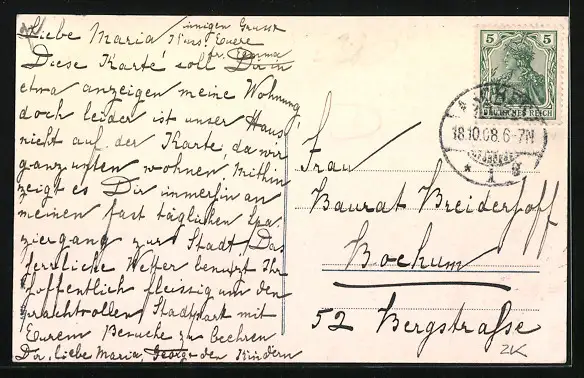 Liebe Maria
innigen Gruss
Eure
Diese Karte soll Dir in
etwa anzeigen meine Wohnung,
doch leider ist unser Haus
nicht auf der Karte, da wir
ganz unten wohnen. Mithin
zeigt es Dir immerhin an
meinen fast täglichen Spa-
ziergang zur Stadt. Das
herrliche Wetter benutzt Ihr
hoffentlich fleissig um den
prachtvollen Stadtpark mit
Eurem Besuche zu beehren
Dir, liebe Maria, George den Kindern
5 5
DEUTSCHES REICH
18.10.08.6-7N
* 1 g
Frau
Baurat Breiderhoff
Bochum
52 Bergstraße